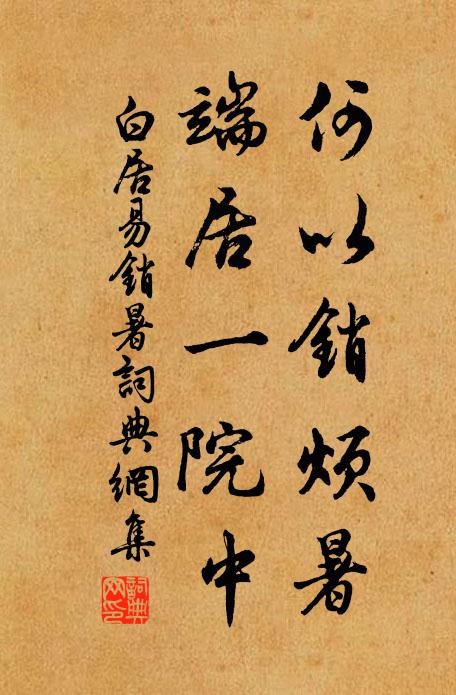 何以銷煩暑
端居一院中
白居易銷暑詞典網集
詞典网印